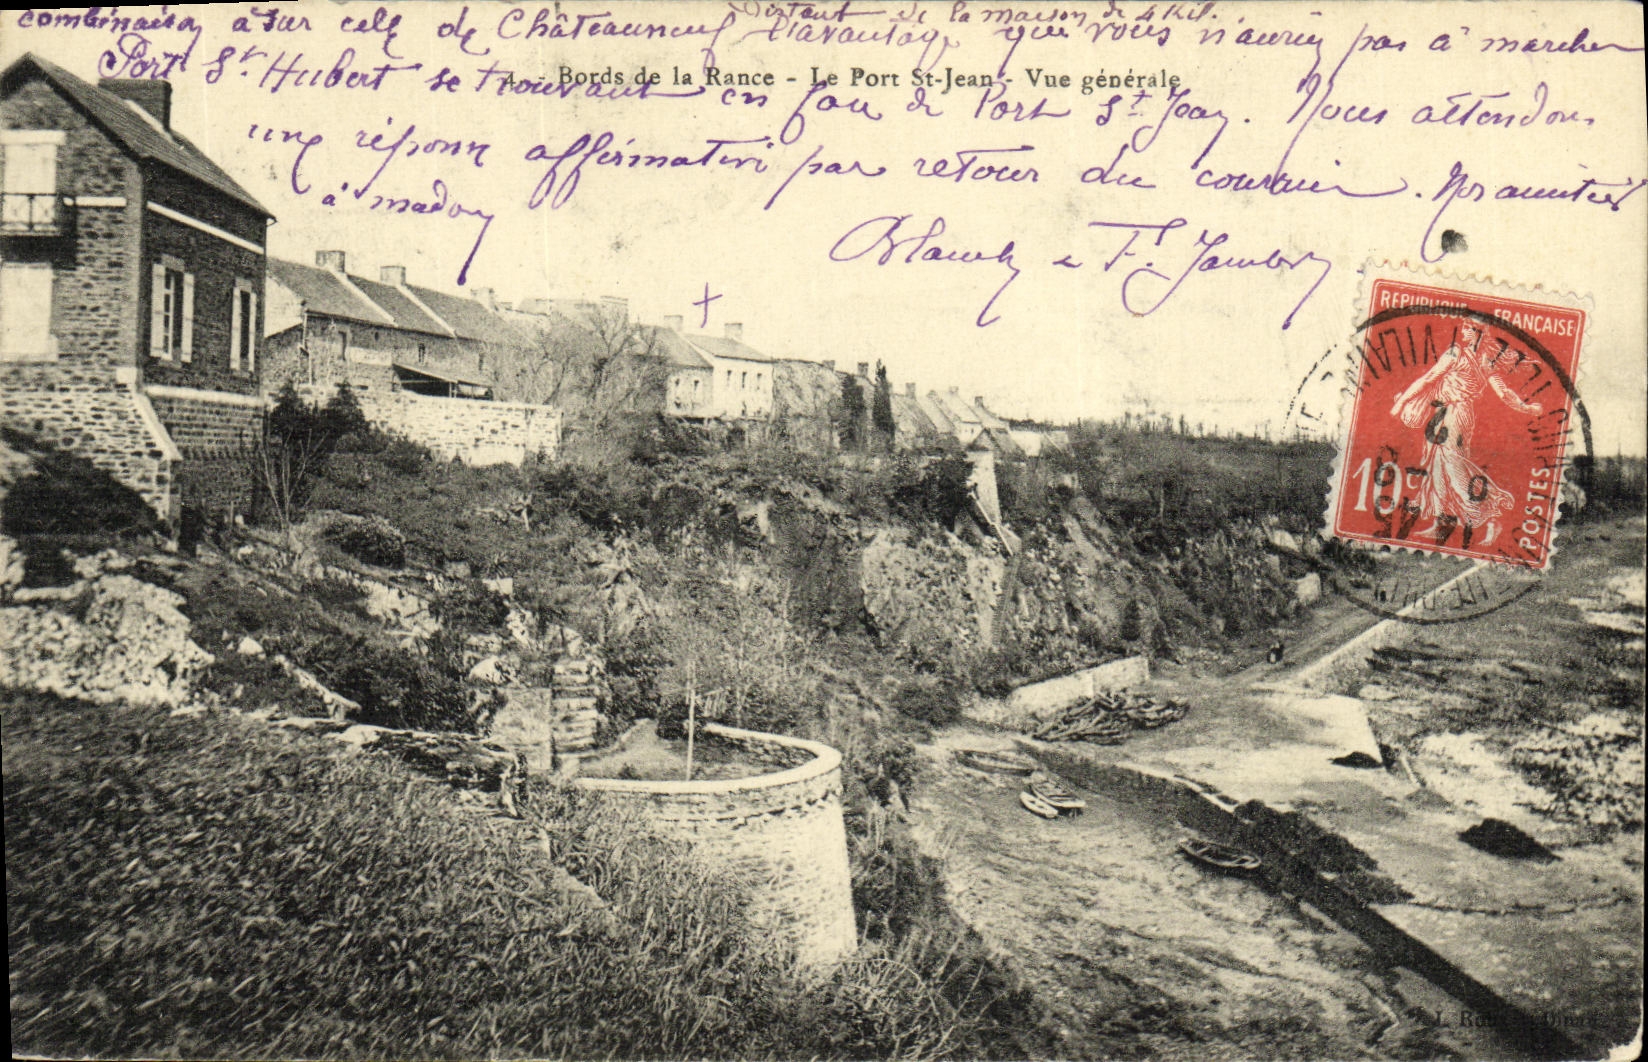 distant de la maison de 4 Kil.
combinaison a sur celle de Châteauneuf l'avantage que vous n'aurez pas à marcher
Port St Hubert se trouvant en face de Port St Jean. Nous attendons
4. - Bords de la Rance - Le Port St-Jean - Vue générale
une réponse affirmative par retour du courrier. Nos amitiés
à
Blanche et
REPUBLIQUE FRANÇAISE
10c
POSTES
ILLE-ET-VILAINE